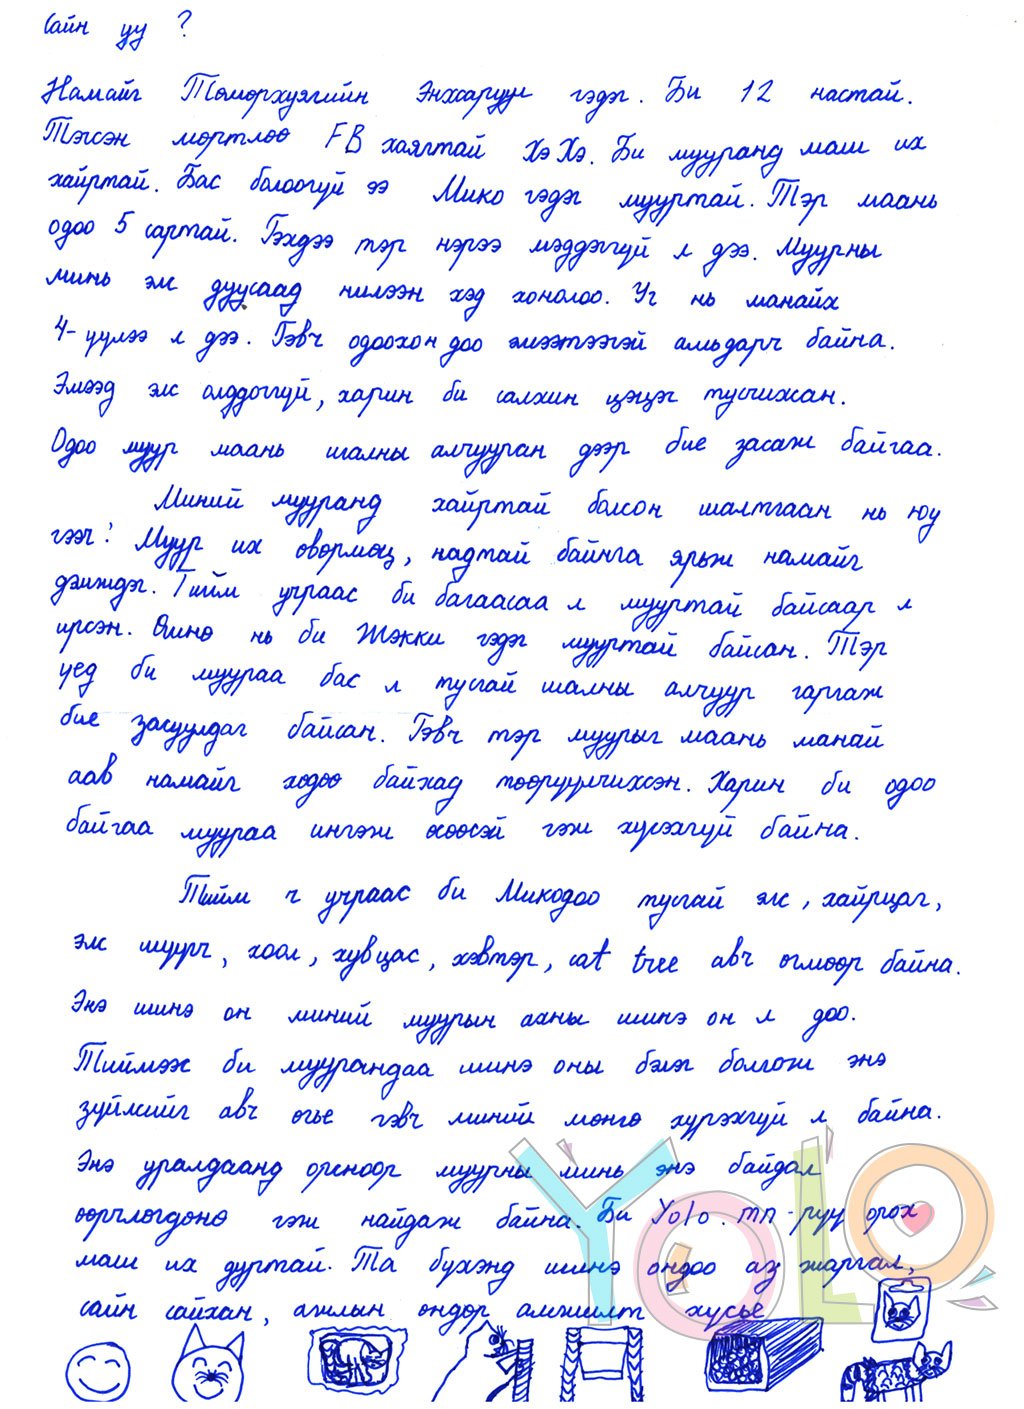 Сайн уу ?
Намайг Төмөрхуягийн Энхжаргал гэдэг. Би 12 настай.
Тэгсэн мөртлөө FB хаягтай Хэ Хэ. Би мууранд маш их
хайртай. Бас болоогүй ээ Мико гэдэг мууртай. Тэр маань
одоо 5 сартай. Гэхдээ тэр нэрээ мэддэггүй л дээ. Муурны
минь элс дуусаад нилээн хэд хонолоо. Уг нь манайх
4-үүлээ л дээ. Гэвч одоохондоо эмээтээгэй амьдарч байна.
Эмээд элс олддоггүй, харин би салхин цэцэг тусчихсан.
Одоо муур маань шалны алчууран дээр бие засаж байгаа.
Миний мууранд хайртай болсон шалтгаан нь юу
гээч! Муур их өвөрмөц, надтай байнга ярьж намайг
дэмждэг. Тийм учраас би багаасаа л мууртай байсаар л
ирсэн. Өмнө нь би Жэкки гэдэг мууртай байсан. Тэр
үед би муураа бас л тусгай шалны алчуур гаргаж
бие засуулдаг байсан. Гэвч тэр муурыг маань манай
аав намайг хөдөө байхад төөрүүлчихсэн. Харин би одоо
байгаа муураа ингэж өсөөсэй гэж хүсэхгүй байна.
Тийм ч учраас би Микодоо тусгай элс, хайрцаг,
элс шүүрч, хоол, хувцас, хэвтэр, cat tree авч өгмөөр байна.
Энэ шинэ он миний муурын анхны шинэ он л доо.
Тиймээс би муурандаа шинэ оны бэлэг болгож энэ
зүйлсийг авч өгье гэвч миний мөнгө хүрэхгүй л байна.
Энэ уралдаанд орсноор муурны минь энэ байдал
өөрчлөгдөнө гэж найдаж байна. Би Yolo.mn-рүү орох
маш их дуртай. Та бүхэнд шинэ ондоо аз жаргал,
сайн сайхан, ажлын өндөр амжилт хүсье
YOLO